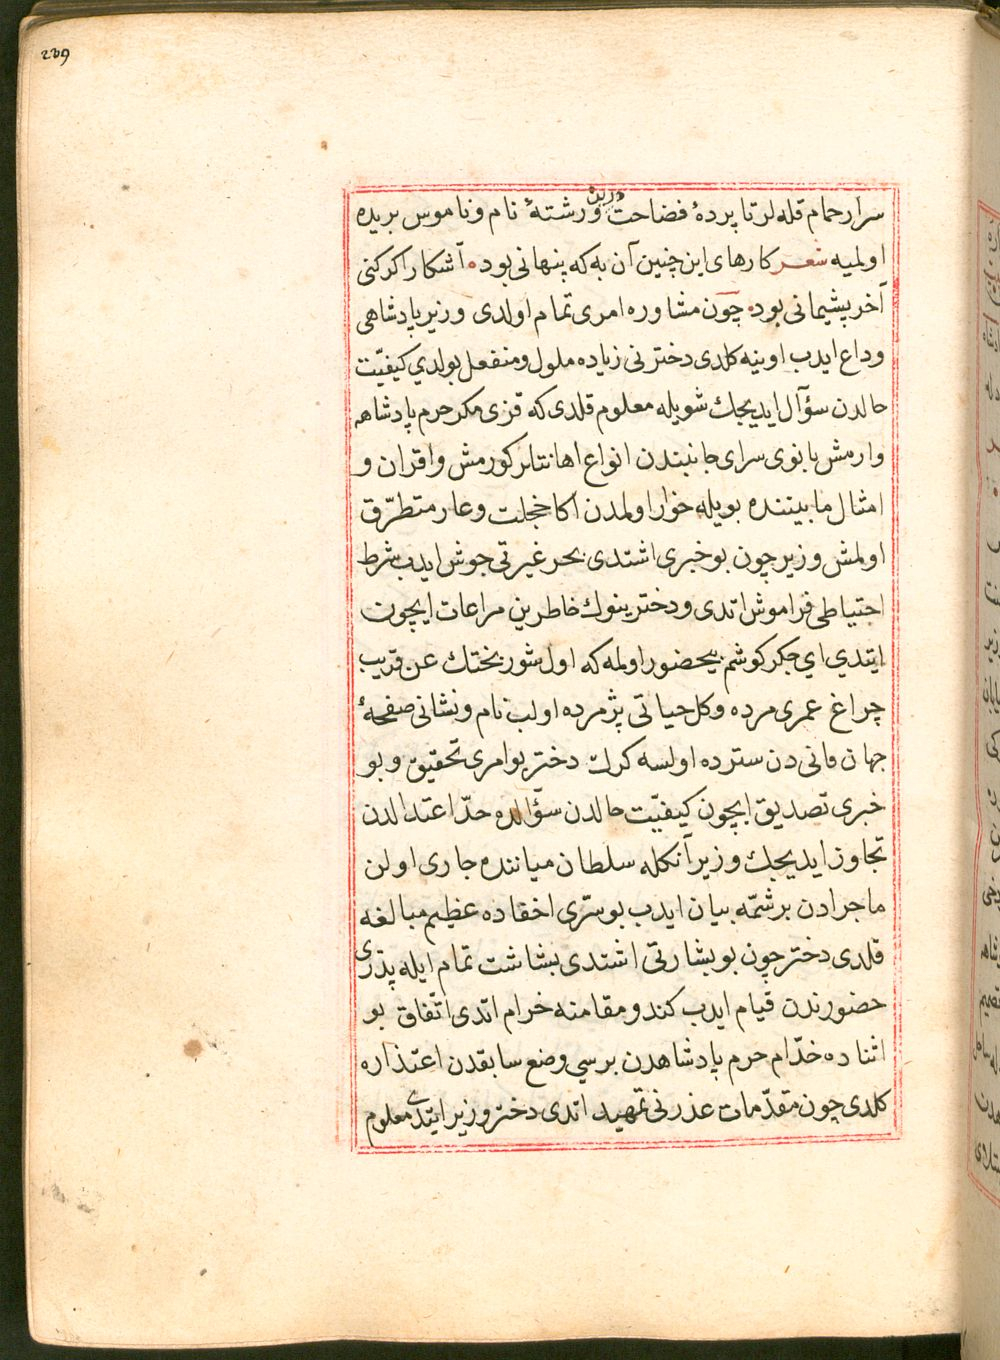 239
سرار حمام قله لر تا پردهٔ فضاحت دریده و رشتهٔ نام و ناموس بریده
اولمیه شعر کارهای این چنین آن به که پنهانی بود آشکارا کر کنی
آخر پشیمانی بود چون مشاوره امری تمام اولدی وزیر پادشاهی
وداع ایدب اوینه کلدی دخترنی زیاده ملول و منفعل بولدي کیفیّت
حالدن سؤآل ایدیجك شویله معلوم قلدی که قزی مکر حرم پادشاهه
وارمش بانوی سرای جانبندن انواع اهانتلر کورمش و اقران و
امثال مابیتنده بویله خوار اولمدن اکا خجلت و عار متطرّق
اولمش وزیر چون بو خبری اشتدی بحر غیرتی جوش ایدب شرط
احتیاطی فراموش اتدی و دخترینوك خاطرین مراعات ایچون
ایتدي اي جکر کوشم بیحضور اولمه که اول شور بختك عن قریب
چراغ عمری مرده و کل حیاتی پژمرده اولب نام و نشانی صفحهٔ
جهان فانی دن سترده اولسه کرك دختر بو امری تحقیق و بو
خبری تصدیق ایچون کیفیّت حالدن سؤالده حدّ اعتدالدن
تجاوز ایدیجك وزیر آنکله سلطان میاننده جاری اولن
ماجرادن بر شمّه بیان ایدب بو سرّی اخفاده عظیم مبالغه
قلدی دختر چون بو بشارتی اشتدی بشاشت تمام ایله پدری
حضورندن قیام ایدب کندو مقامنه خرام اتدی اتّفاق بو
اثناده خدّام حرم پادشاهدن برسي وضع سابقدن اعتذاره
کلدی چون مقدّمات عذرنی تمهید اتدی دختر وزیر ایتدي معلوم